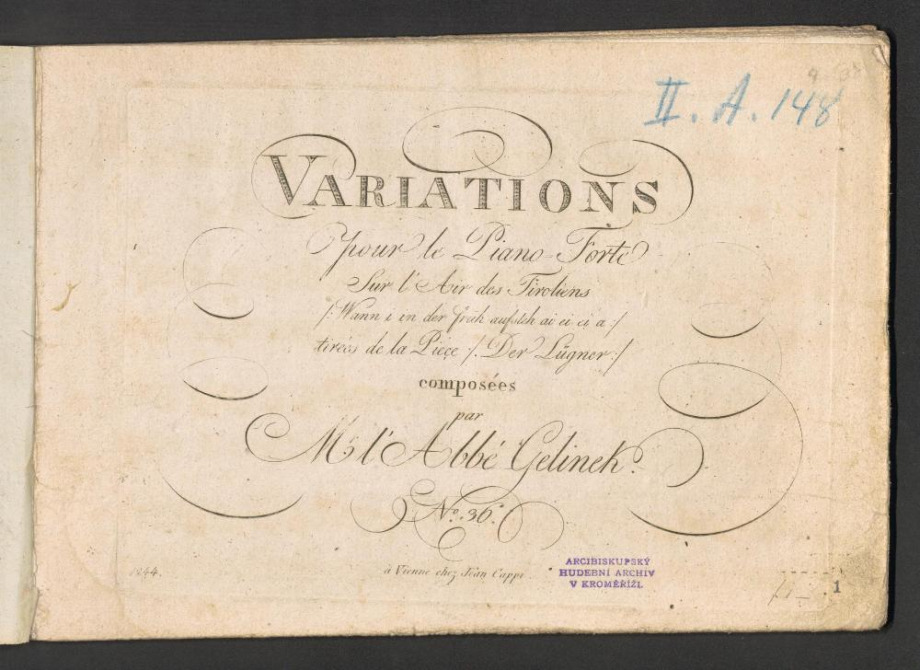 II. A. 148
VARIATIONS
pour le Piano-Forte
Sur l'Air des Tiroliens
/: Wann i in der früh aufsteh ai ei ei a :/
tirées de la Piéce /: Der Lügner :/
composées
par
Mr. l'Abbé Gelinek.
No. 36.
à Vienne chez Jean Cappi
ARCIBISKUPSKÝ
HUDEBNÍ ARCHIV
V KROMĚŘÍŽI.
1